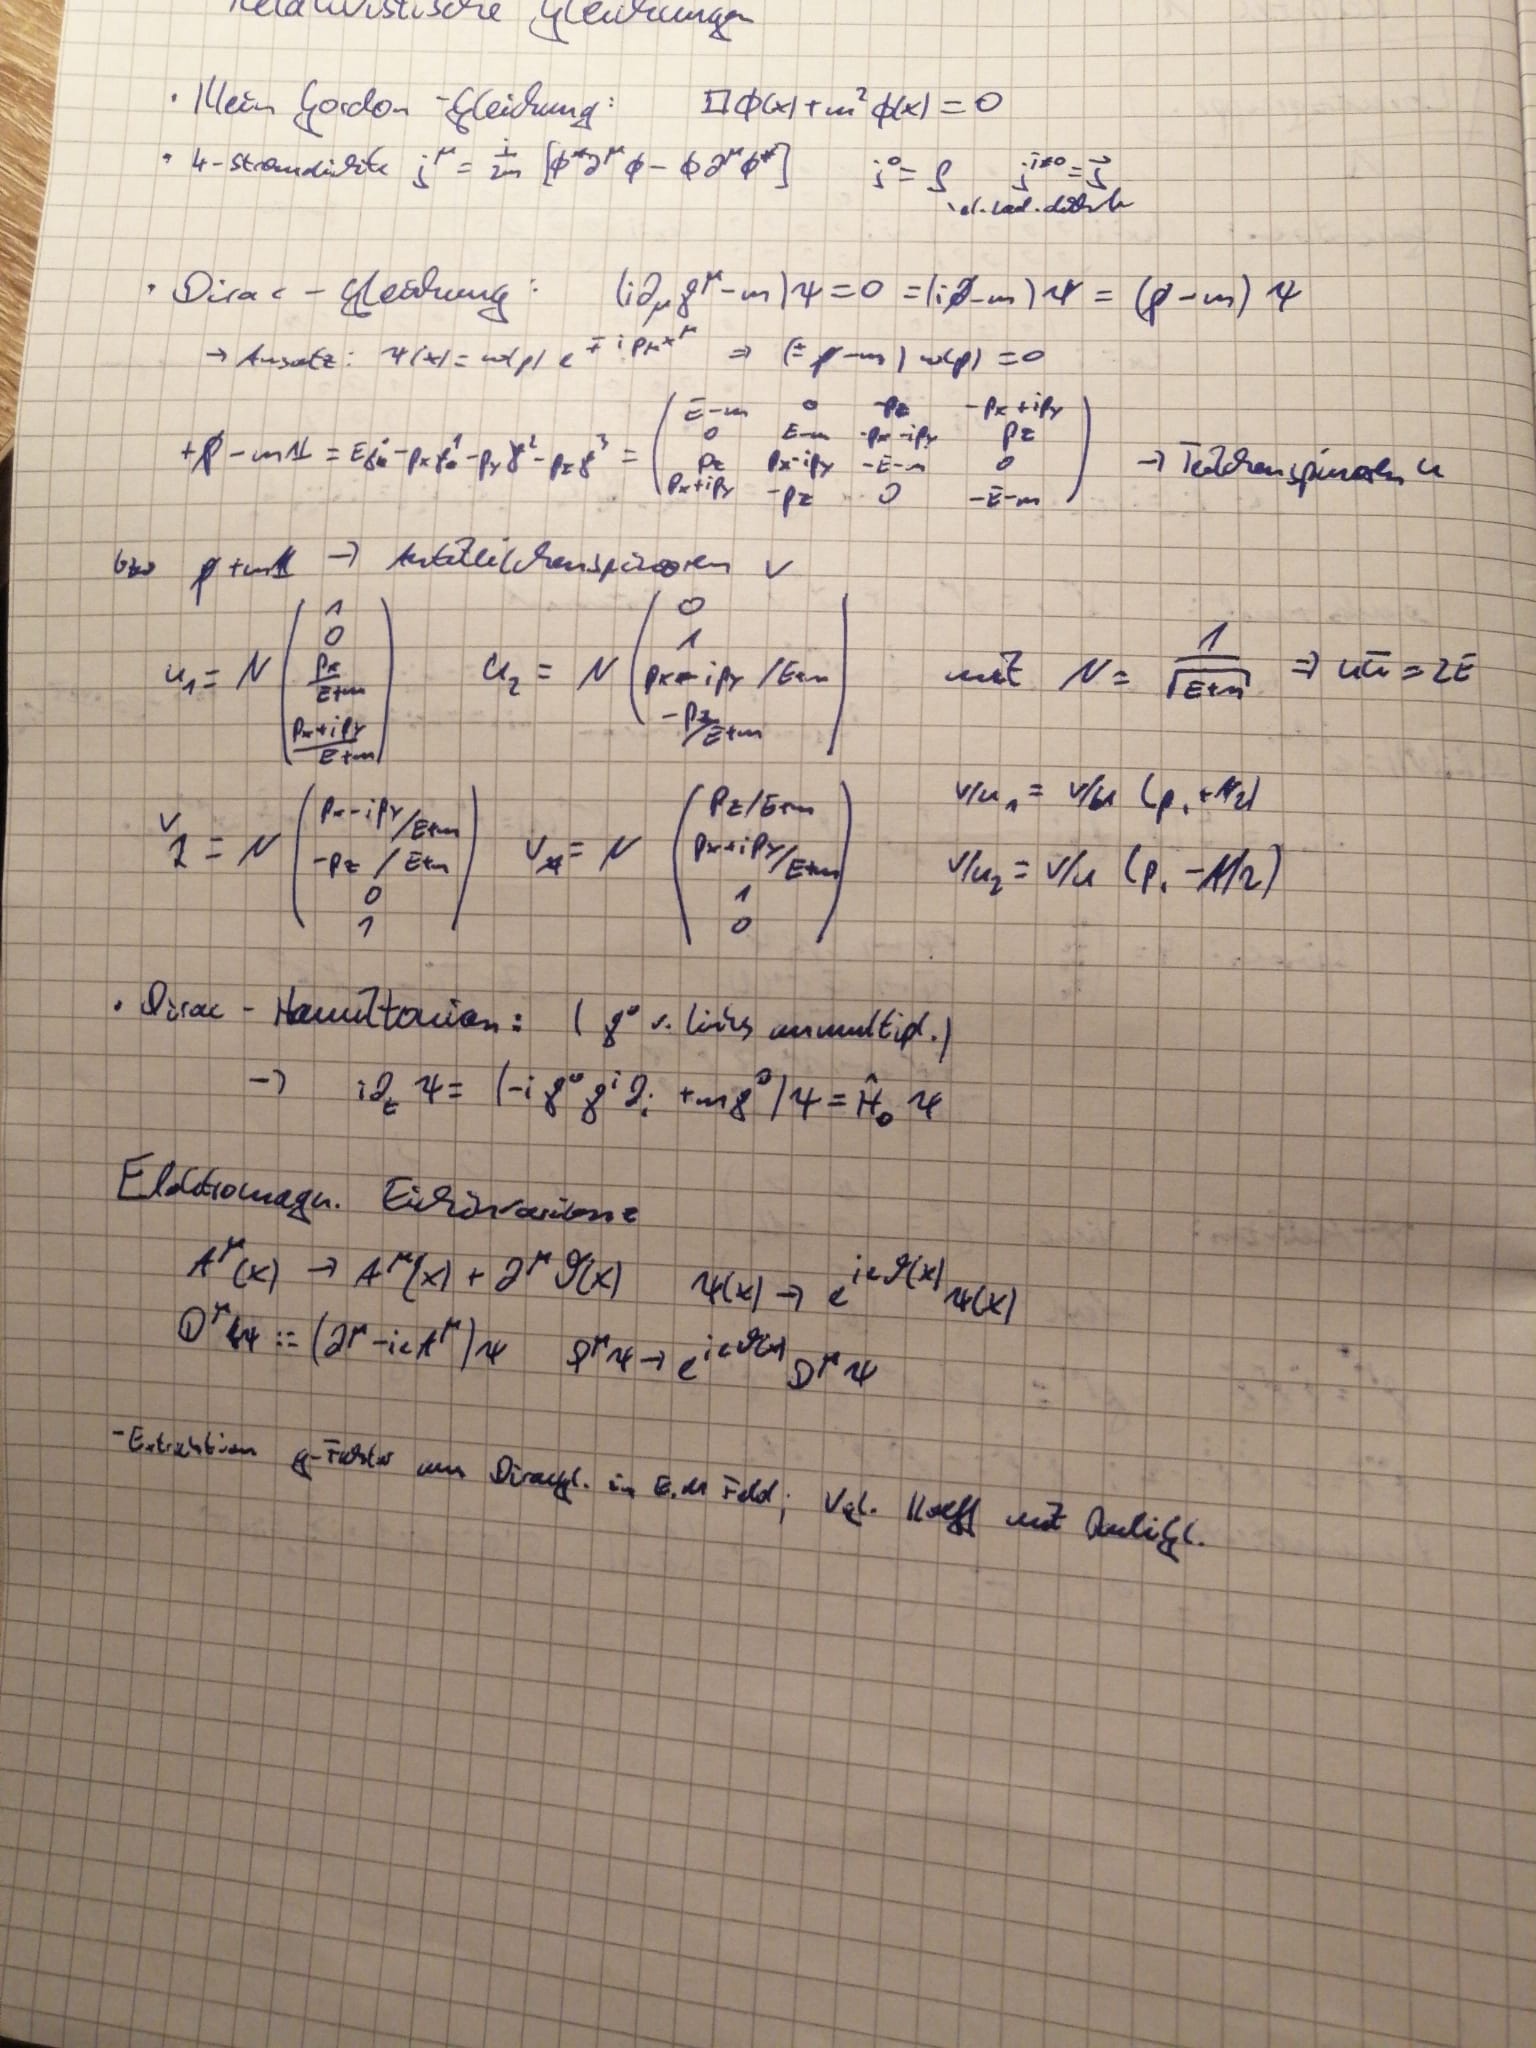 Relativistische Gleichungen
· Klein Gordon-Gleichung: □ϕ(x)+m²ϕ(x)=0
· 4-Stromdichte j^μ = i/2m [ϕ*∂^μϕ - ϕ∂^μϕ*] j^0=ρ j^{i≠0}=j⃗
el. Lad.dichte
· Dirac-Gleichung: (i∂_μγ^μ-m)ψ=0 =(i∂̸-m)ψ = (p̸-m)ψ
→ Ansatz: ψ(x)=w(p) e^{∓ip_μx^μ} ⇒ (±p̸-m)w(p)=0
+p̸-m𝟙 = Eγ^0-p_xγ^1-p_yγ^2-p_zγ^3 = ( E-m 0 -p_z -p_x+ip_y
0 E-m -p_x-ip_y p_z
p_z p_x-ip_y -E-m 0
p_x+ip_y -p_z 0 -E-m ) → Teilchenspinoren u
bzw p̸+m𝟙 → Antiteilchenspinoren v
u_1 = N ( 1 0 p_z/E+m p_x+ip_y/E+m ) u_2 = N ( 0 1 p_x-ip_y/E+m -p_z/E+m ) mit N = 1/√E+m ⇒ uū=2E
v_2 = N ( p_x-ip_y/E+m -p_z/E+m 0 1 ) v_1 = N ( p_z/E+m p_x+ip_y/E+m 1 0 ) v/u_1 = v/u (p, +1/2)
v/u_2 = v/u (p, -1/2)
· Dirac-Hamiltonian: (γ^0 v. links anmultipl.)
→ i∂_tψ = (-iγ^0γ^i∂_i +mγ^0)ψ = Ĥ_0ψ
Elektromagn. Eichinvarianz
A^μ(x) → A^μ(x)+∂^μϑ(x) ψ(x) → e^{ieϑ(x)}ψ(x)
D^μψ := (∂^μ-ieA^μ)ψ D^μψ → e^{ieϑ(x)}D^μψ
-Extraktion g-Faktor aus Diracgl. in E.M Feld; Vgl. Koeff mit Pauligl.